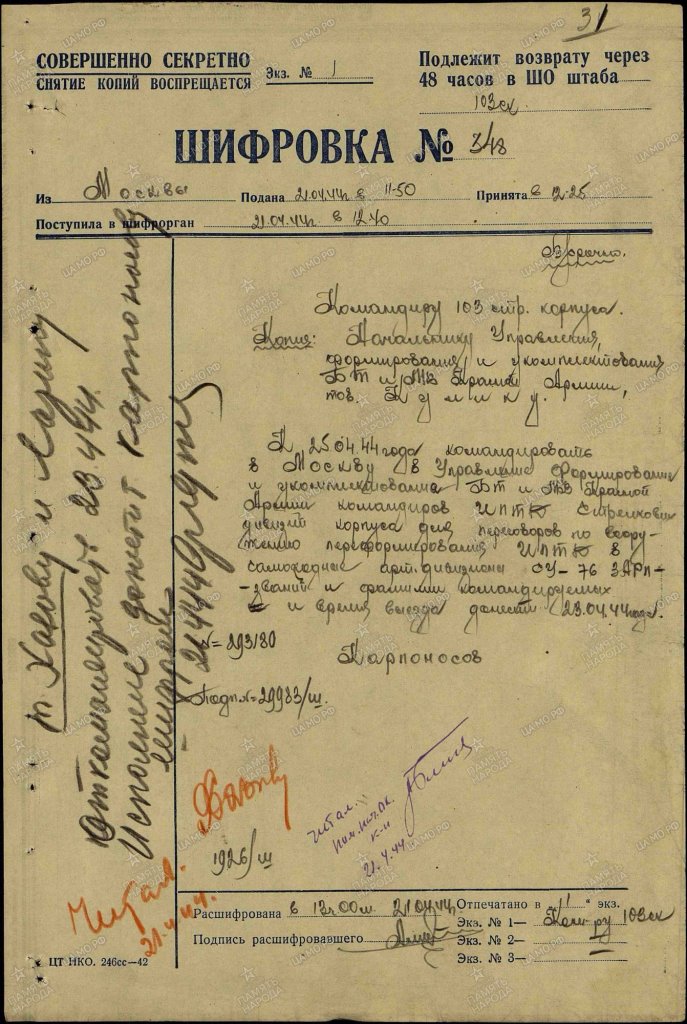 31
СОВЕРШЕННО СЕКРЕТНО
СНЯТИЕ КОПИЙ ВОСПРЕЩАЕТСЯ
Экз. № 1
Подлежит возврату через
48 часов в ШО штаба
103ск
ШИФРОВКА № 348
Из Москвы Подана 21.04.44г в 11-50 Принята в 12-25
Поступила в шифрорган 21.04.44г в 12-40
Срочно.
Командиру 103 стр. корпуса.
Копия: Начальнику Управления
формирования и укомплектования
БТ и МВ Красной Армии,
тов. Кумику.
К 25.04.44 года командировать
в Москву в Управление Формирования
и укомплектования БТ и МВ Красной
Армии командиров ИПТД Стрелковых
дивизий корпуса для переговоров по воору-
жению переформирования ИПТД в
самоходные арт. дивизионы СУ-76 ЗАРП-
званий и фамилии командируемых
и время выезда донести 23.04.44 года.
№=293180
Карпоносов
Подп.№=29983/ш.
т. Хахову и
Откомандировать 23.4.44.
Исполнение донести Карпоносову
21.4.44
1926/ш
Читал.
21.4.44.
Читал.
Пом. Нач. ОК
к-н
21.4.44
Расшифрована в 13ч.00м. 21.04.44г.
Подпись расшифровавшего
Отпечатано в "1" экз.
Экз. № 1— Ком-ру 103ск
Экз. № 2—
Экз. № 3—
ЦТ НКО. 246сс—42
ПАМЯТЬ НАРОДА
ЦАМО.РФ